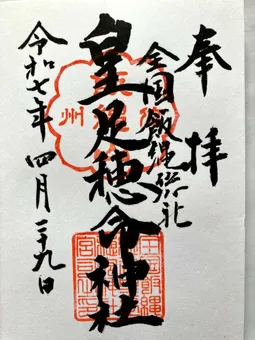 奉拝
全国飯縄総社
皇足穂命神社
令和七年四月二十九日
州